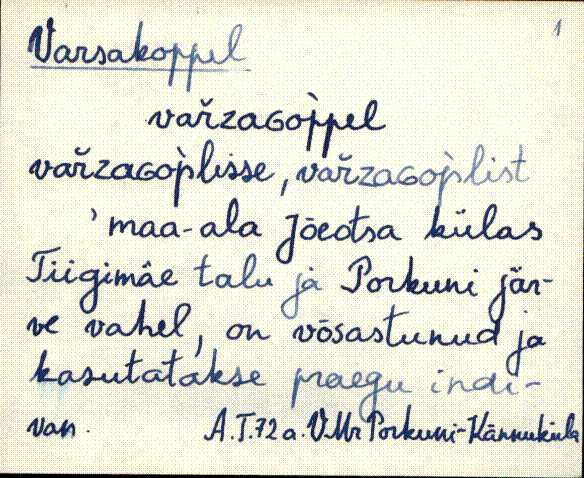 1
Varsakoppel
vařzaGop̀pel
vařzaGop̀lisse, vařzaGop̀list
'maa-ala Jõeotsa külas
Tiigimäe talu ja Porkuni jär-
ve vahel, on võsastunud ja
kasutatakse praegu indi-
van. A.T.72 a. V.Mr Porkuni-Kännuküla